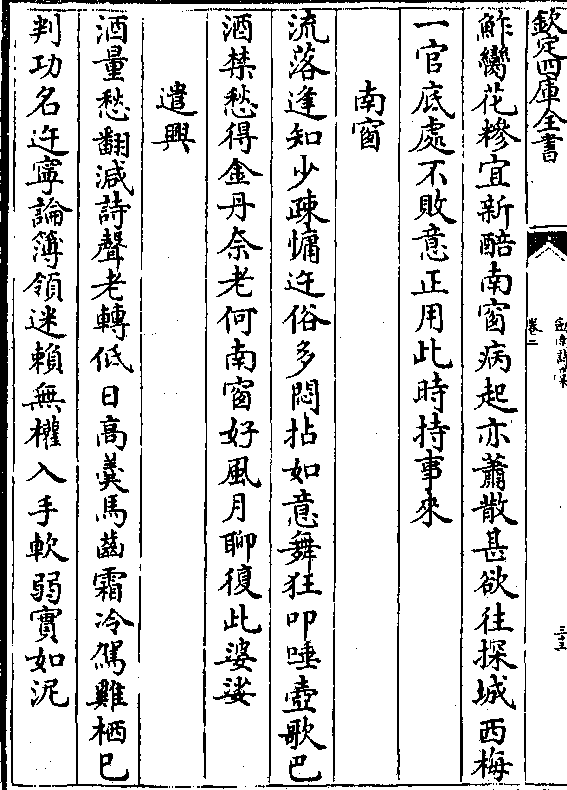 欽定四庫全書
劍南詩藁
卷二
三五
鮓臠花糝宜新醅南窗病起亦蕭散甚欲往探城西梅
一官底處不敗意正用此時持事來
南窗
流落逢知少疎慵迕俗多悶拈如意舞狂叩唾壺歌巴
酒禁愁得金丹奈老何南窗好風月聊復此婆娑
遣興
酒量愁翻減詩聲老轉低日高羮馬齒霜冷駕雞栖已
判功名迕寧論簿領迷賴無權入手軟弱實如泥